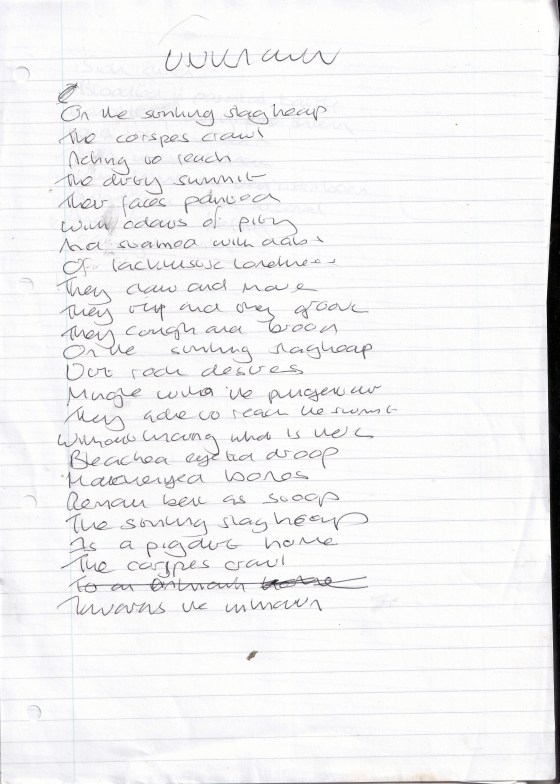 UNKNOWN
On the stinking slagheap
The corspes crawl
Aching to reach
The dirty summit
Their faces painted
With colours of pity
And stained with dabs
Of lacklustre loneliness
They claw and move
They trip and they groove
They cough and brood
On the stinking slagheap
Dirt rock desires
Mingle with the pungent air
They ache to reach the summit
Without knowing what is there
Bleached eyelid droop
Remain bent as stoop
The stinking slagheap
Is a pigdirt home
The corpses crawl
To an unknown home
Towards the unknown